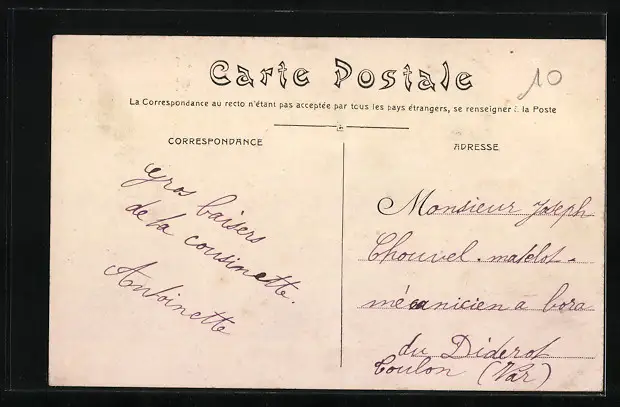 Carte Postale
10
La Correspondance au recto n'étant pas acceptée par tous les pays étrangers, se renseigner à la Poste
CORRESPONDANCE
gros baisers
de la cousinette.
Antoinette
ADRESSE
Monsieur Joseph
Chouvel. matelot-
mécanicien a bora
du Diderot
Toulon (Var)